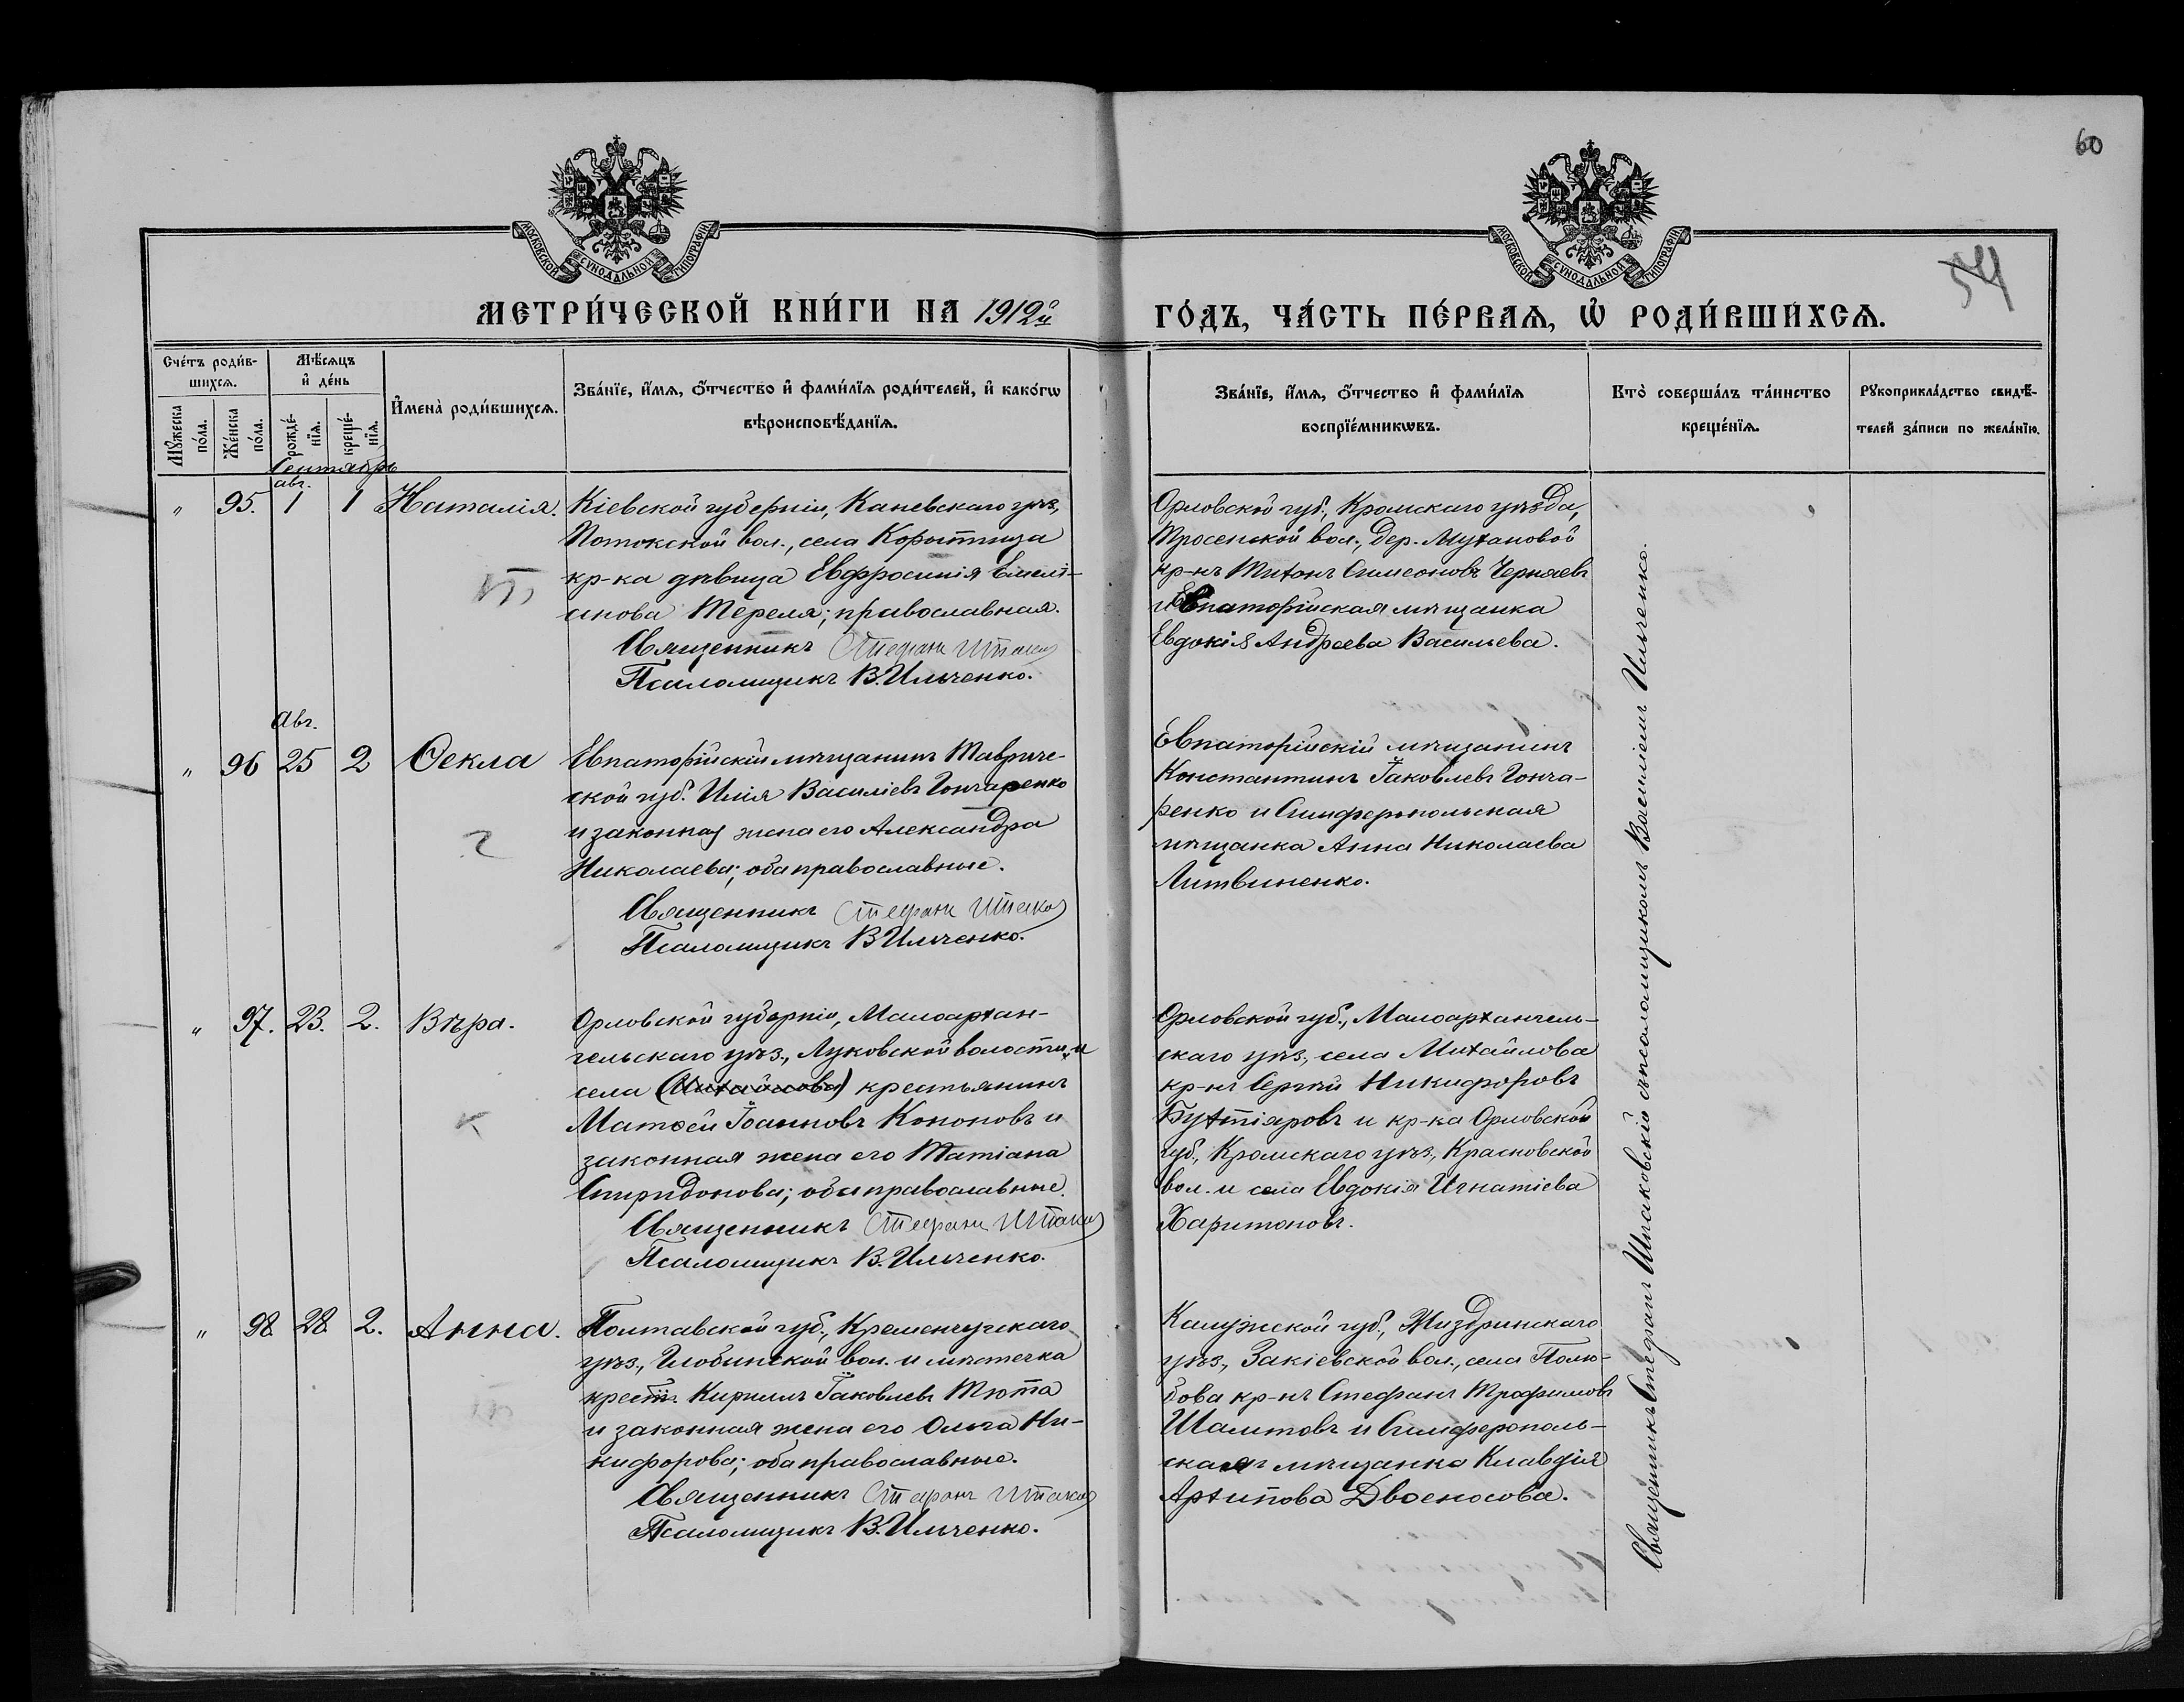 60
54
МОСКОВСКОЙ СѴНОДАЛЬНОЙ ТИПОГРАФІИ
МОСКОВСКОЙ СѴНОДАЛЬНОЙ ТИПОГРАФІИ
МЕТРИ́ЧЕСКОЙ КНИ́ГИ НА 1912й
ГО́ДЪ, ЧА́СТЬ ПЕ́РВАѦ, Ѡ҆ РОДИ́ВШИХСѦ.
Сче́тъ роди́в-
шихсѧ.
Мꙋ́жеска по́ла.
Же́нска по́ла.
Мѣ́сѧцъ
и҆ де́нь
рожде́-нїѧ.
креще́-нїѧ.
И҆мена̀ роди́вшихсѧ.
Зва́нїе, и҆́мѧ, ѻ҆́тчество и҆ фами́лїѧ роди́телей, и҆ како́гѡ
вѣроисповѣ́данїѧ.
Зва́нїе, и҆́мѧ, ѻ҆́тчество и҆ фами́лїѧ
воспрїе́мникѡвъ.
Кто̀ соверша́лъ та́инство
креще́нїѧ.
Рꙋкоприкла́дство свидѣ́-
телей за́писи по жела́нїю.
Сентябрь
авг.
" 95. 1 1 Наталія.
Кіевской губерніи, Каневскаго уѣз,
Потокской вол., села Корытища
кр-ка дѣвица Евфросинія Емелі-
инова Тереля; православная.
Священникъ Стефанъ
Псаломщикъ В. Ильченко.
Орловской губ., Кромскаго уѣзда,
Тросенской вол., дер. Мухановой
кр-нъ Титонъ Симеоновъ Черняевъ
и Евпаторійская мѣщанка
Евдокія Андреева Васильева.
авг.
" 96 25 2 Ѳекла
Евпаторійскій мѣщанинъ Тавриче-
ской губ. Илія Василіевъ Гончаренко
и законная жена его Александра
Николаева; оба православные.
Священникъ Стефанъ
Псаломщикъ В Ильченко.
Евпаторійскій мѣщанинъ
Константинъ Іаковлевъ Гонча-
ренко и Симферопольская
мѣщанка Анна Николаева
Литвиненко.
" 97. 23. 2. Вѣра.
Орловской губерніи, Малоархан-
гельскаго уѣз., Луковской волости и
села (Михайлова) крестьянинъ
Матѳей Іоанновъ Кононовъ и
законная жена его Татіана
Спиридонова; оба православные.
Священникъ Стефанъ
Псаломщикъ В. Ильченко.
Орловской губ., Малоархангель-
скаго уѣз, села Михайлова
кр-нъ Сергѣй Никифоровъ
Бухтіяровъ и кр-ка Орловской
губ., Кромскаго уѣз., Красновской
вол. и села Евдокія Игнатіева
Харитоновъ.
" 98. 28. 2. Анна.
Полтавской губ., Кременчугскаго
уѣз., Глобинской вол. и мѣстечка
крест. Кириллъ Іаковлевъ Тюта
и законная жена его Ольга Ни-
кифорова; оба православные.
Священникъ Стефанъ
Псаломщикъ В. Ильченко.
Калужской губ., Жиздринскаго
уѣз., Закіевской вол., села Полю-
бова кр-нъ Стефанъ Трофимовъ
Шамтовъ и Симферополь-
ская мѣщанка Клавдія
Архипова Двоеносова.
Священникъ Стефанъ Шпаковскій съ псаломщикомъ Василіемъ Ильченко.